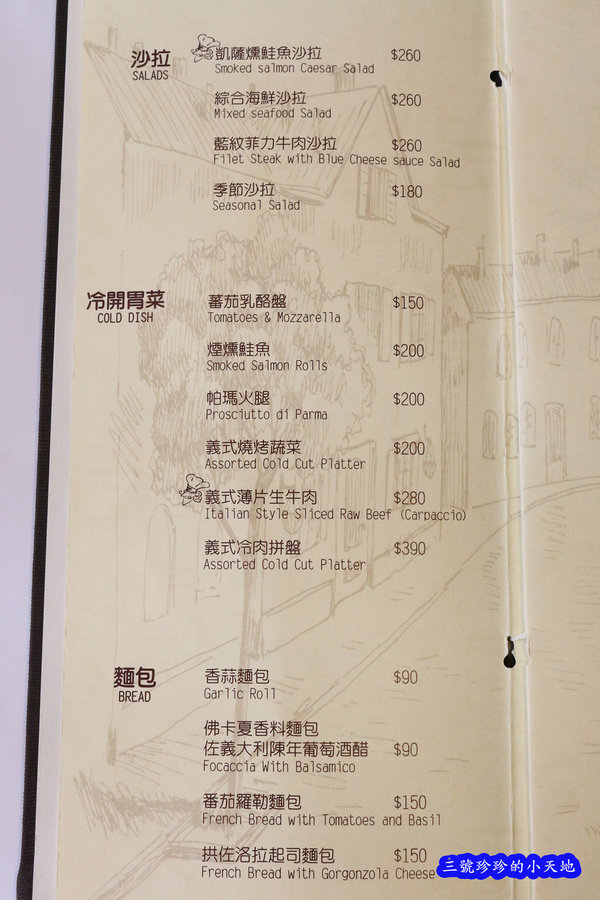 沙拉
SALADS
凱薩燻鮭魚沙拉 $260
Smoked salmon Caesar Salad
綜合海鮮沙拉 $260
Mixed seafood Salad
藍紋菲力牛肉沙拉 $260
Filet Steak with Blue Cheese sauce Salad
季節沙拉 $180
Seasonal Salad
冷開胃菜
COLD DISH
蕃茄乳酪盤 $150
Tomatoes & Mozzarella
煙燻鮭魚 $200
Smoked Salmon Rolls
帕瑪火腿 $200
Prosciutto di Parma
義式燒烤蔬菜 $200
Assorted Cold Cut Platter
義式薄片生牛肉 $280
Italian Style Sliced Raw Beef (Carpaccio)
義式冷肉拼盤 $390
Assorted Cold Cut Platter
麵包
BREAD
香蒜麵包 $90
Garlic Roll
佛卡夏香料麵包
佐義大利陳年葡萄酒醋 $90
Focaccia With Balsamico
番茄羅勒麵包 $150
French Bread with Tomatoes and Basil
拱佐洛拉起司麵包 $150
French Bread with Gorgonzola Cheese
三號珍珍的小天地